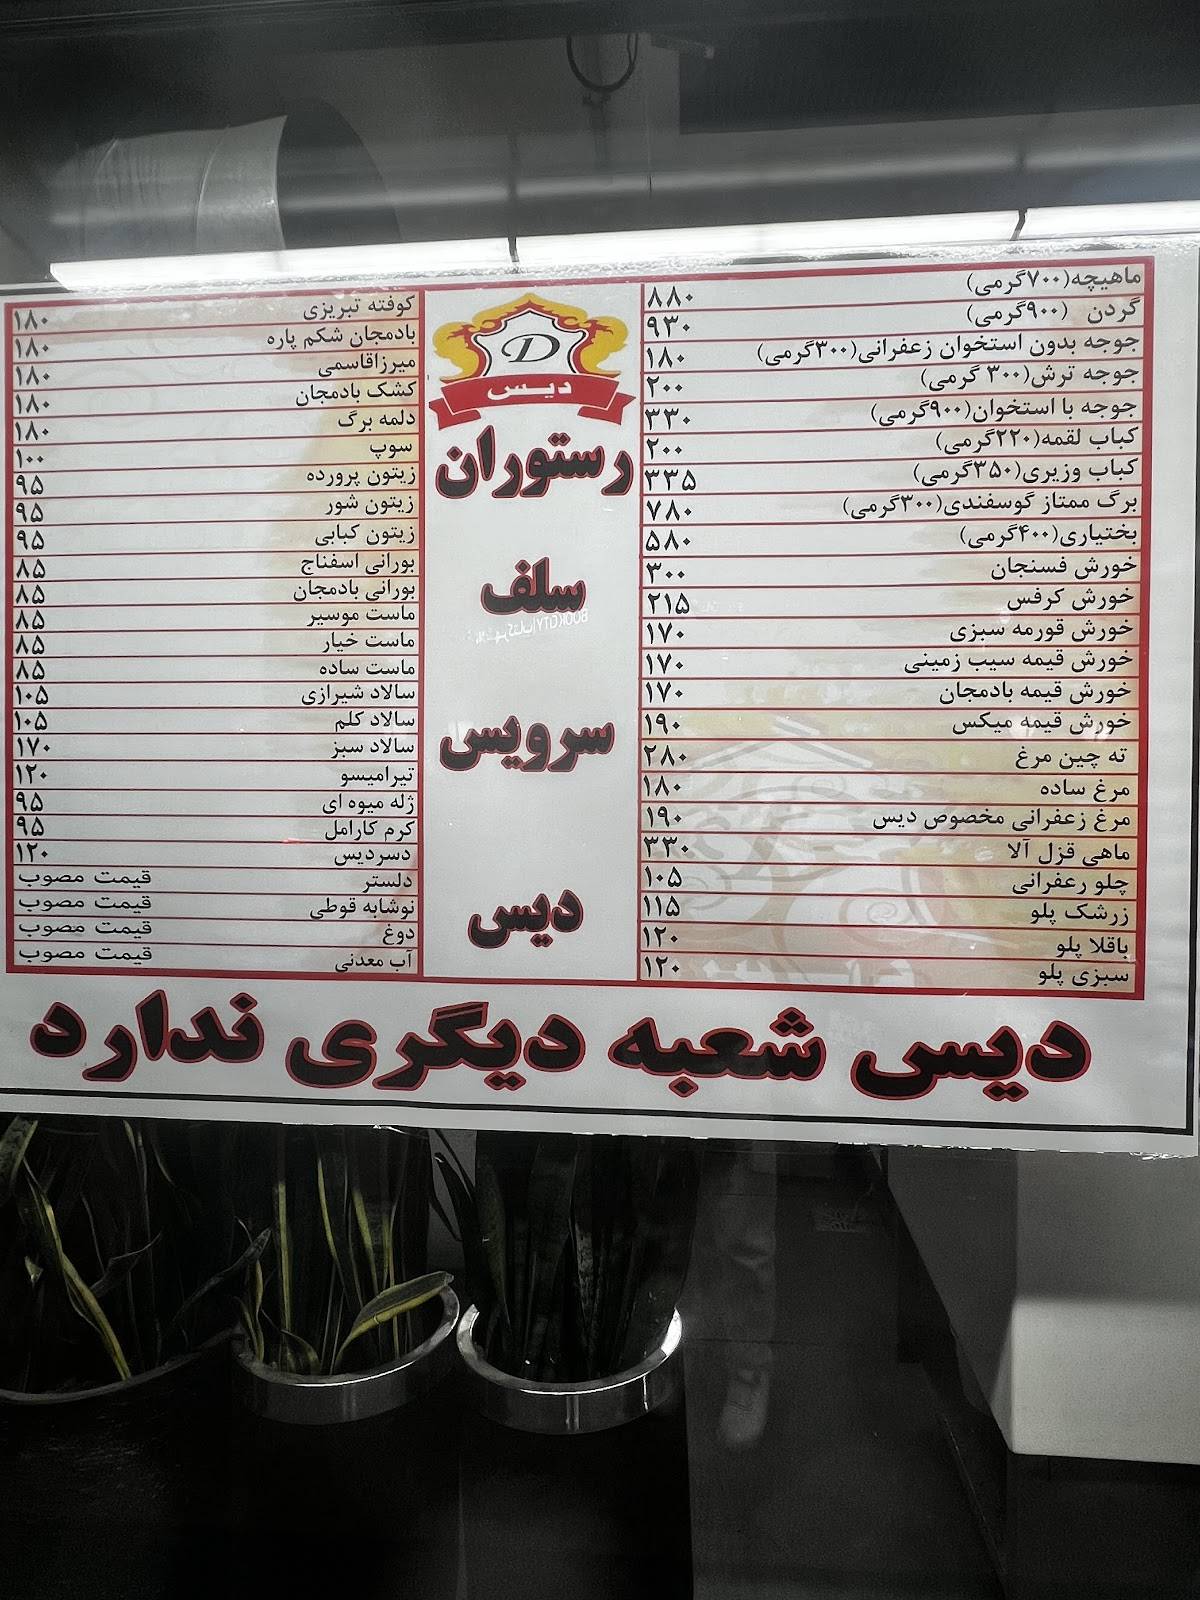 ماهیچه(۷۰۰گرمی) ۸۸۰
گردن (۹۰۰گرمی) ۹۳۰
جوجه بدون استخوان زعفرانی(۳۰۰گرمی) ۱۸۰
جوجه ترش(۳۰۰ گرمی) ۲۰۰
جوجه با استخوان(۹۰۰گرمی) ۳۳۰
کباب لقمه(۲۲۰گرمی) ۲۰۰
کباب وزیری(۳۵۰گرمی) ۳۳۵
برگ ممتاز گوسفندی(۳۰۰گرمی) ۷۸۰
بختیاری(۴۰۰گرمی) ۵۸۰
خورش فسنجان ۳۰۰
خورش کرفس ۲۱۵
خورش قورمه سبزی ۱۷۰
خورش قیمه سیب زمینی ۱۷۰
خورش قیمه بادمجان ۱۷۰
خورش قیمه میکس ۱۹۰
ته چین مرغ ۲۸۰
مرغ ساده ۱۸۰
مرغ زعفرانی مخصوص دیس ۱۹۰
ماهی قزل آلا ۳۳۰
چلو رعفرانی ۱۰۵
زرشک پلو ۱۱۵
باقلا پلو ۱۲۰
سبزی پلو ۱۲۰
D
دیس
رستوران
سلف
سرویس
دیس
کوفته تبریزی ۱۸۰
بادمجان شکم پاره ۱۸۰
میرزاقاسمی ۱۸۰
کشک بادمجان ۱۸۰
دلمه برگ ۱۸۰
سوپ ۱۰۰
زیتون پرورده ۹۵
زیتون شور ۹۵
زیتون کبابی ۹۵
بورانی اسفناج ۸۵
بورانی بادمجان ۸۵
ماست موسیر ۸۵
ماست خیار ۸۵
ماست ساده ۸۵
سالاد شیرازی ۱۰۵
سالاد کلم ۱۰۵
سالاد سبز ۱۷۰
تیرامیسو ۱۲۰
ژله میوه ای ۹۵
کرم کارامل ۹۵
دسردیس ۱۲۰
دلستر قیمت مصوب
نوشابه قوطی قیمت مصوب
دوغ قیمت مصوب
آب معدنی قیمت مصوب
دیس شعبه دیگری ندارد